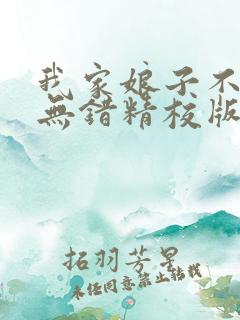 我家娘子不
無错精校版
拓羽芳星
未任同意禁止转载